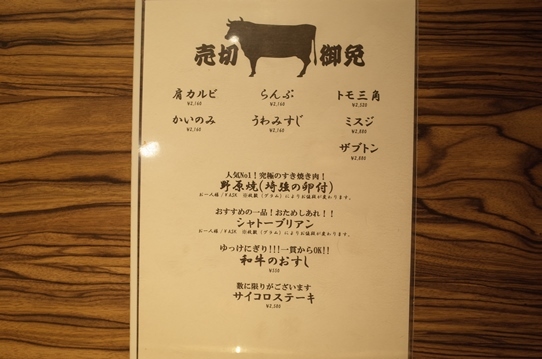 売切 御免
肩カルビ らんぷ トモ三角
¥2,160 ¥2,160
かいのみ うわみすじ ミスジ
¥2,160 ¥2,160 ¥2,880
ザブトン
¥2,880
人気No1！究極のすき焼き肉！
野原焼(埼強の卵付)
おすすめの一品！おためしあれ！！
シャトーブリアン
ゆっけにぎり!!!一貫からOK!!
和牛のおすし
数に限りがございます
サイコロステーキ